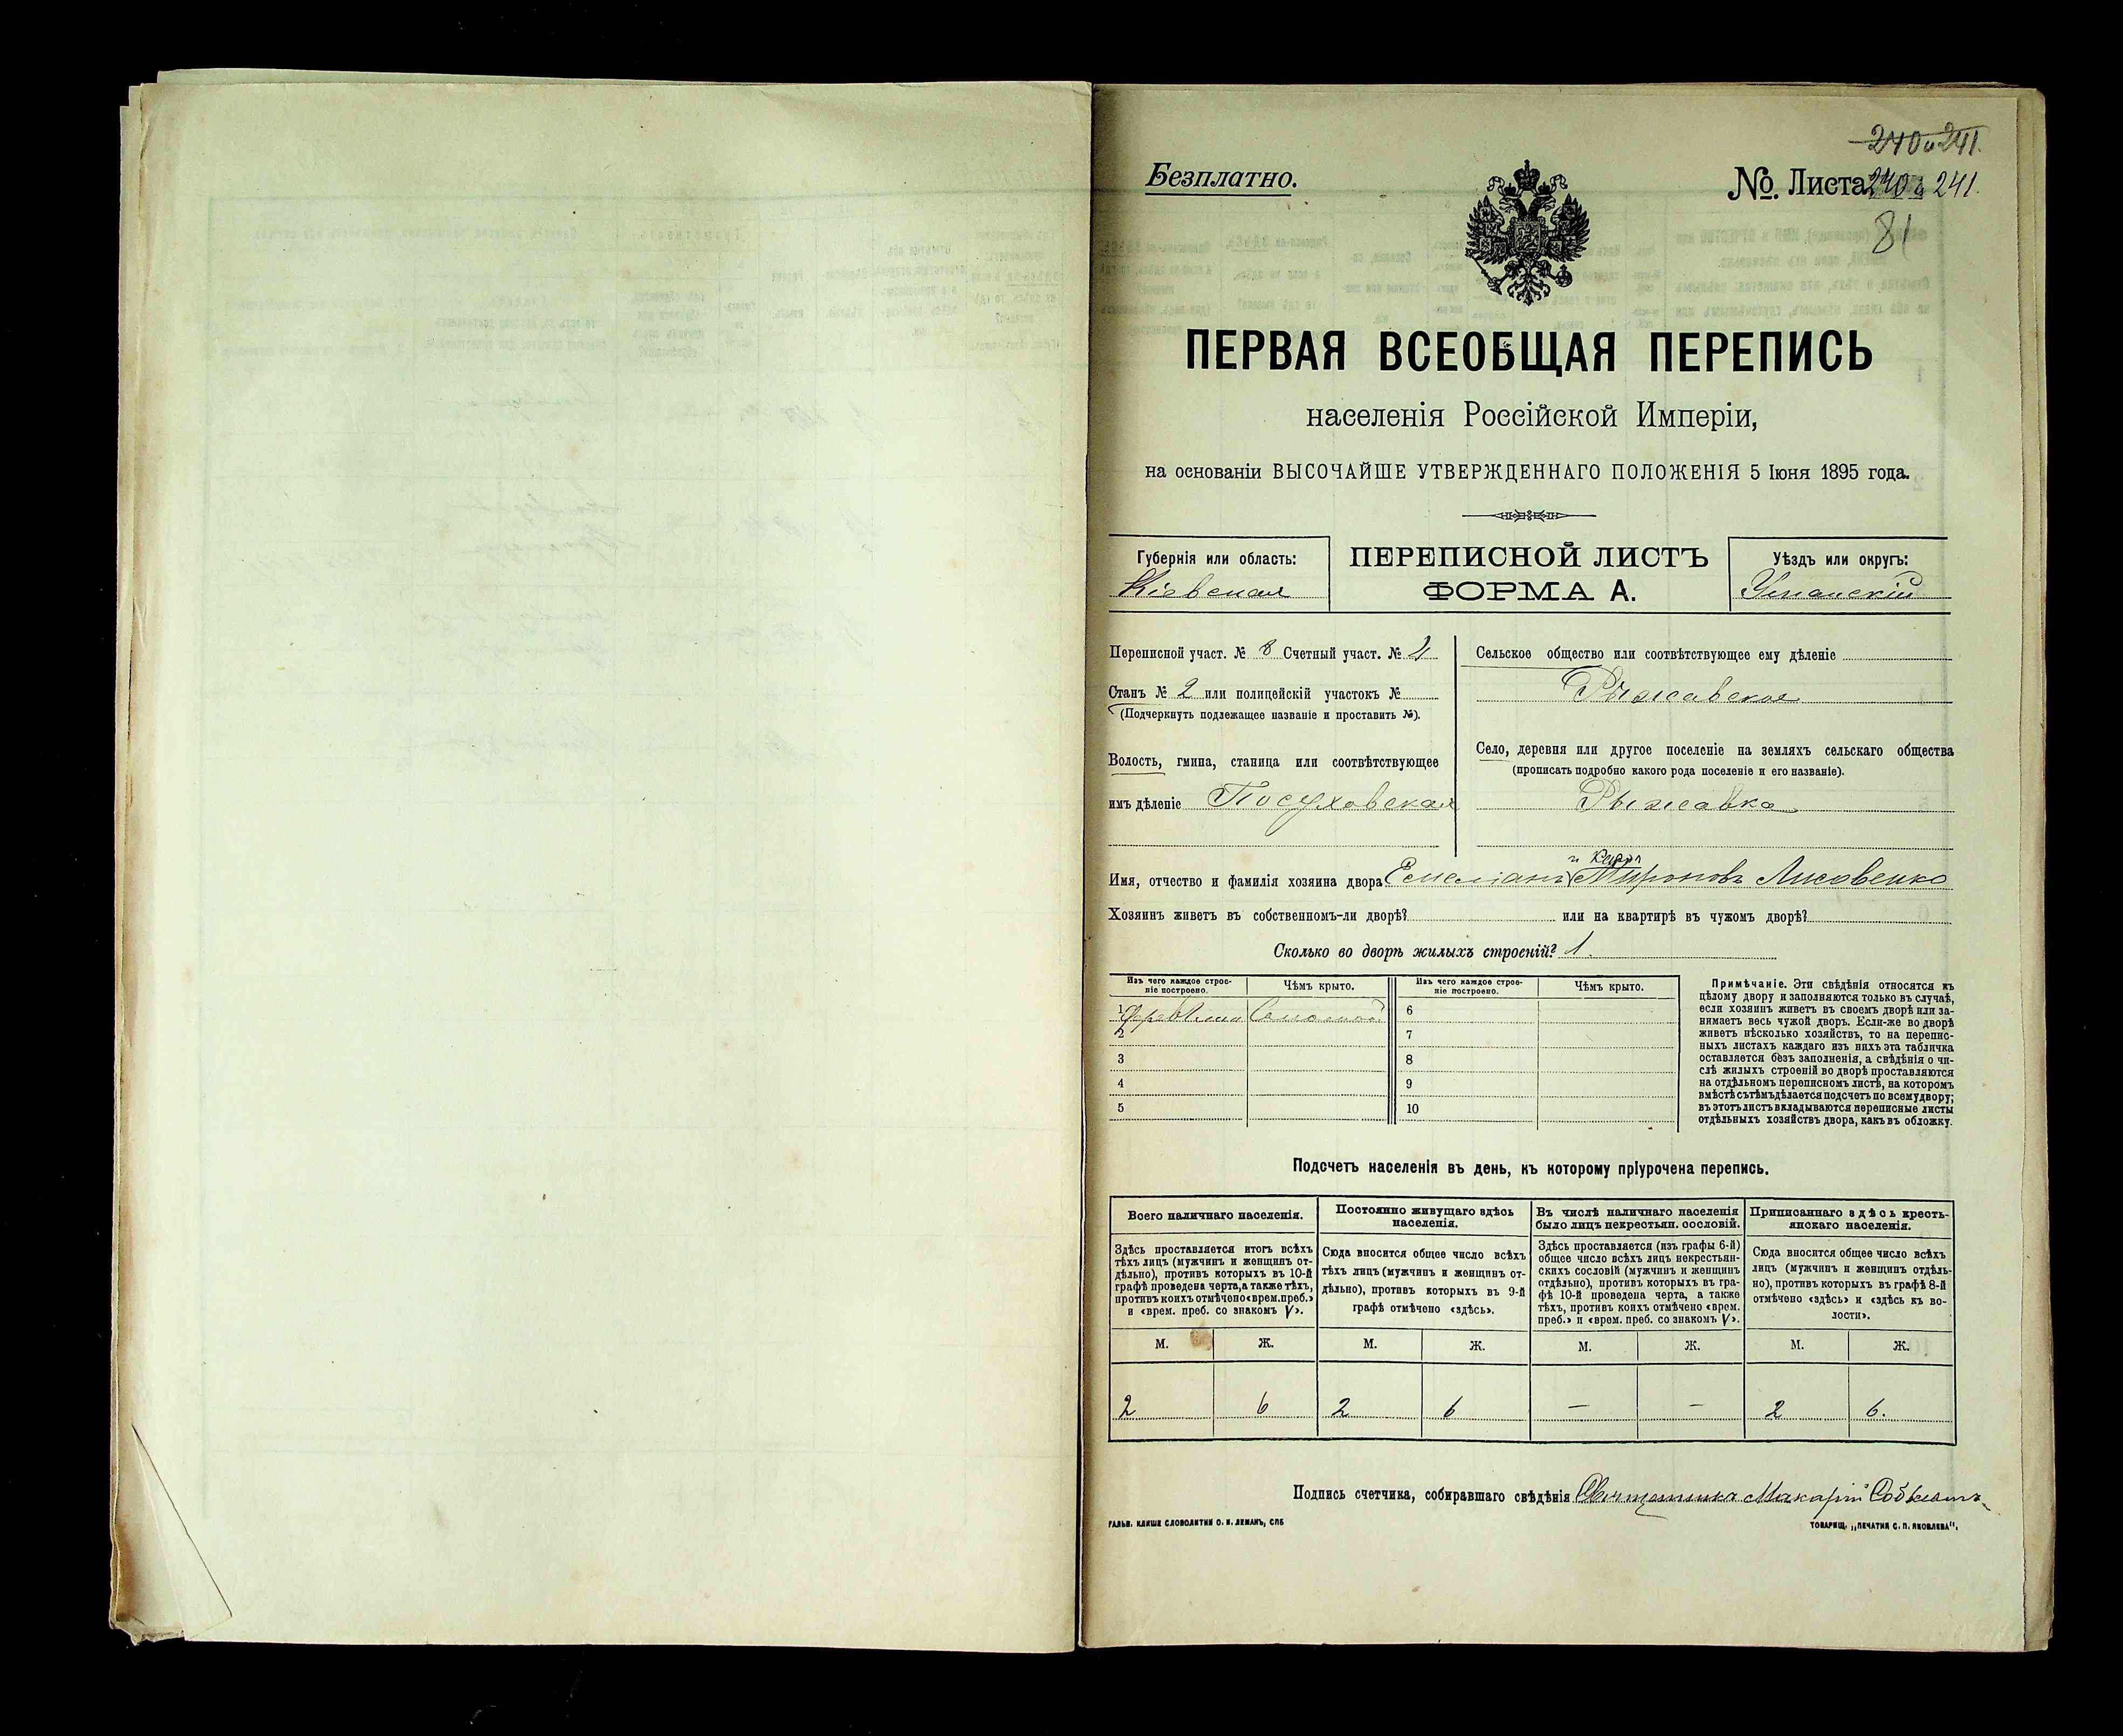 240 и 241.
Безплатно.
№. Листа 240 и 241.
81
ПЕРВАЯ ВСЕОБЩАЯ ПЕРЕПИСЬ
населенія Россійской Имперіи,
на основаніи ВЫСОЧАЙШЕ УТВЕРЖДЕННАГО ПОЛОЖЕНІЯ 5 Іюня 1895 года.
Губернія или область:
Кіевская
ПЕРЕПИСНОЙ ЛИСТЪ
ФОРМА А.
Уѣздъ или округъ:
Уманскій
Переписной участ. № 8 Счетный участ. № 2
Станъ № 2 или полицейскій участокъ №
(Подчеркнуть подлежащее названіе и проставить №).
Волость, гмина, станица или соотвѣтствующее
имъ дѣленіе Посуховская
Сельское общество или соотвѣтствующее ему дѣленіе
Рыжавское
Село, деревня или другое поселеніе на земляхъ сельскаго общества
(прописать подробно какого рода поселеніе и его названіе).
Рыжавка
и Карп
Имя, отчество и фамилія хозяина двора Емеліанъ Мироновъ Лисовенко
Хозяинъ живетъ въ собственномъ-ли дворѣ? или на квартирѣ въ чужомъ дворѣ?
Сколько во дворѣ жилыхъ строеній? 1.
Изъ чего каждое строе-
ніе построено.
Чѣмъ крыто.
Изъ чего каждое строе-
ніе построено.
Чѣмъ крыто.
1 Соломой 6
2 7
3 8
4 9
5 10
Примѣчаніе. Эти свѣдѣнія относятся къ
цѣлому двору и заполняются только въ случаѣ,
если хозяинъ живетъ въ своемъ дворѣ или за-
нимаетъ весь чужой дворъ. Если-же во дворѣ
живетъ нѣсколько хозяйствъ, то на перепис-
ныхъ листахъ каждаго изъ нихъ эта табличка
оставляется безъ заполненія, а свѣдѣнія о чи-
слѣ жилыхъ строеній во дворѣ проставляются
на отдѣльномъ переписномъ листѣ, на которомъ
вмѣстѣ съ тѣмъ дѣлается подсчетъ по всему двору;
въ этотъ листъ вкладываются переписные листы
отдѣльныхъ хозяйствъ двора, какъ въ обложку.
Подсчетъ населенія въ день, къ которому пріурочена перепись.
Всего наличнаго населенія.
Здѣсь проставляется итогъ всѣхъ
тѣхъ лицъ (мужчинъ и женщинъ от-
дѣльно), противъ которыхъ въ 10-й
графѣ проведена черта, а также тѣхъ,
противъ коихъ отмѣчено «врем. преб.»
и «врем. преб. со знакомъ V».
Постоянно живущаго здѣсь
населенія.
Сюда вносится общее число всѣхъ
тѣхъ лицъ (мужчинъ и женщинъ от-
дѣльно), противъ которыхъ въ 9-й
графѣ отмѣчено «здѣсь».
Въ числѣ наличнаго населенія
было лицъ некрестьян. сословій.
Здѣсь проставляется (изъ графы 6-й)
общее число всѣхъ лицъ некрестьян-
скихъ сословій (мужчинъ и женщинъ
отдѣльно), противъ которыхъ въ гра-
фѣ 10-й проведена черта, а также
тѣхъ, противъ коихъ отмѣчено «врем.
преб.» и «врем. преб. со знакомъ V».
Приписаннаго здѣсь кресть-
янскаго населенія.
Сюда вносится общее число всѣхъ
лицъ (мужчинъ и женщинъ отдѣль-
но), противъ которыхъ въ графѣ 8-й
отмѣчено «здѣсь» и «здѣсь къ во-
лости».
М. Ж. М. Ж. М. Ж. М. Ж.
2 6 2 6 — — 2 6.
Подпись счетчика, собиравшаго свѣдѣнія Макарій
ГАЛЬВ. КЛИШЕ СЛОВОЛИТНИ О. И. ЛЕМАНЪ, СПБ
ТОВАРИЩ. „ПЕЧАТНЯ С. П. ЯКОВЛЕВА".